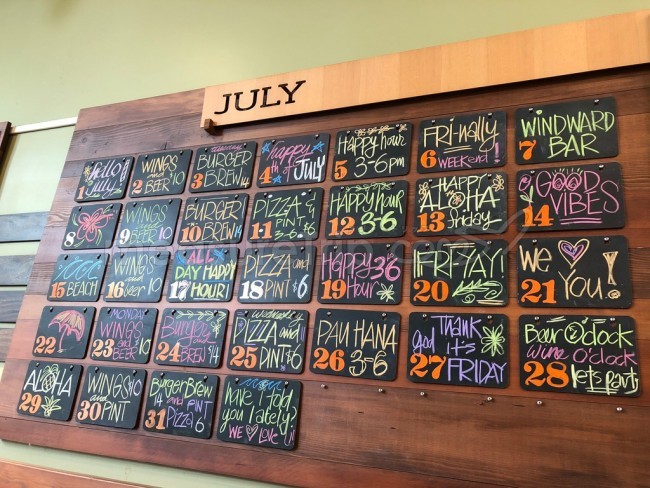 JULY
hello
July
1
WINGS
and
BEER $10
2
Tuesday
BURGER
3 BREW 14
happy
4th of
4 JULY
Happy hour
5 3-6pm
FRI-Nally
6 WEEKEND!
WINDWARD
7 BAR
8
WINGS
and
9 BEER 10
BURGER
and
10 BREW
PIZZA &
PINT
11 $6
Happy hour
12 3-6
HAPPY
ALOHA
13 friday
GOOD
14 VIBES
15 BEACH
WINGS
and
16 BEER 10
ALL
DAY HAPPY
17 HOUR!
PIZZA
and
18 PINT $6
Happy 3-6
19 HOUR
IFRIYAY!
20
We
YOU!
21
22
MONDAY
WINGS
and
23 BEER
Burger
and
24 BREW
Wednesday
PIZZA
and
25 PINT $6
PAU HANA
26 3-6
THANK
God IT'S
27 FRIDAY
Beer O'clock
Wine O'clock
28 lets party
ALOHA
29
WINGS 10
and
30 PINT
Burger Brew
14 and PINT
31 Pizza 6
have I told
you lately?
WE LOVE